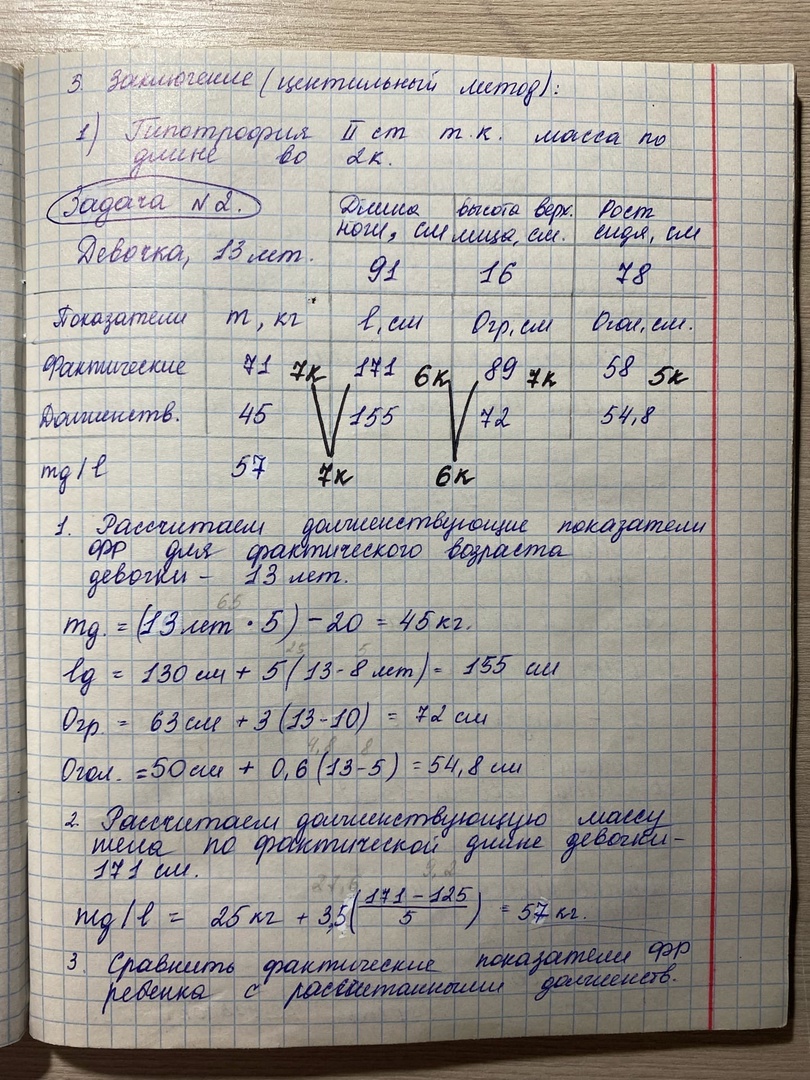 3. Заключение (центильный метод):
1) Гипотрофия II ст т.к. масса по
длине во 2к.
Задача №2.
Девочка, 13 лет.
Длина ноги, см | высота верх. лица, см. | Рост сидя, см
91 | 16 | 78
Показатели | m, кг | l, см | Oгр, см | Огол, см.
Фактические | 71 7к | 171 6к | 89 7к | 58 5к
Долженств. | 45 | 155 | 72 | 54,8
mд/l | 57 7к 6к
1. Рассчитаем долженствующие показатели
ФР для фактического возраста
девочки - 13 лет.
65
mд. = (13 лет · 5) - 20 = 45 кг.
25 5
lд = 130 см + 5(13-8 лет) = 155 см
Огр. = 63 см + 3(13-10) = 72 см
4,8 8
Огол. = 50 см + 0,6(13-5) = 54,8 см
2. Рассчитаем долженствующую массу
тела по фактической длине девочки-
171 см.
9,2
mд/l = 25 кг + 3,5(171-125/5) = 57 кг.
3 Сравнить фактические показатели ФР
ребенка с рассчитанными долженств.